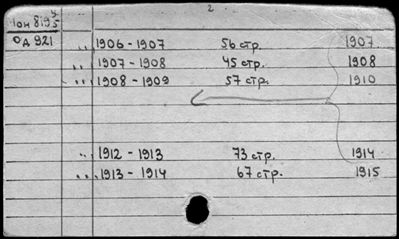 2
Юн 8195
Од 921 " 1906-1907 56 стр. 1907
" 1907-1908 45 стр. 1908
... 1908-1909 57 стр. 1910
" 1912-1913 73 стр. 1914
... 1913-1914 67 стр. 1915